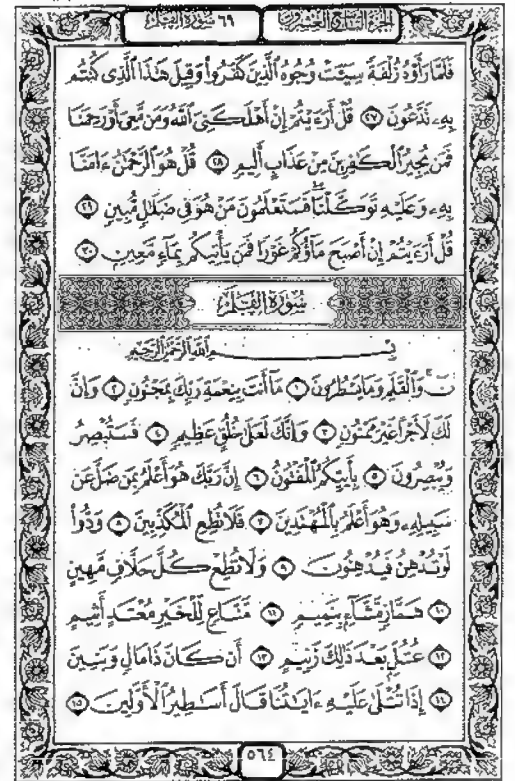 الجزء التاسع والعشرون ٦٩ سورة القلم
فَلَمَّا رَأَوْهُ زُلْفَةً سِيٓـَٔتْ وُجُوهُ ٱلَّذِينَ كَفَرُوا۟ وَقِيلَ هَٰذَا ٱلَّذِى كُنتُم
بِهِۦ تَدَّعُونَ ٢٧ قُلْ أَرَءَيْتُمْ إِنْ أَهْلَكَنِىَ ٱللَّهُ وَمَن مَّعِىَ أَوْ رَحِمَنَا
فَمَن يُجِيرُ ٱلْكَٰفِرِينَ مِنْ عَذَابٍ أَلِيمٍ ٢٨ قُلْ هُوَ ٱلرَّحْمَٰنُ ءَامَنَّا
بِهِۦ وَعَلَيْهِ تَوَكَّلْنَا فَسَتَعْلَمُونَ مَنْ هُوَ فِى ضَلَٰلٍ مُّبِينٍ ٢٩
قُلْ أَرَءَيْتُمْ إِنْ أَصْبَحَ مَآؤُكُمْ غَوْرًا فَمَن يَأْتِيكُم بِمَآءٍ مَّعِينٍ ٣٠
سُورَةُ القَلَمِ
بِسْمِ ٱللَّهِ ٱلرَّحْمَٰنِ ٱلرَّحِيمِ
نٓ وَٱلْقَلَمِ وَمَا يَسْطُرُونَ ١ مَآ أَنتَ بِنِعْمَةِ رَبِّكَ بِمَجْنُونٍ ٢ وَإِنَّ
لَكَ لَأَجْرًا غَيْرَ مَمْنُونٍ ٣ وَإِنَّكَ لَعَلَىٰ خُلُقٍ عَظِيمٍ ٤ فَسَتُبْصِرُ
وَيُبْصِرُونَ ٥ بِأَييِّكُمُ ٱلْمَفْتُونُ ٦ إِنَّ رَبَّكَ هُوَ أَعْلَمُ بِمَن ضَلَّ عَن
سَبِيلِهِۦ وَهُوَ أَعْلَمُ بِٱلْمُهْتَدِينَ ٧ فَلَا تُطِعِ ٱلْمُكَذِّبِينَ ٨ وَدُّوا۟
لَوْ تُدْهِنُ فَيُدْهِنُونَ ٩ وَلَا تُطِعْ كُلَّ حَلَّافٍ مَّهِينٍ
١٠ هَمَّازٍ مَّشَّآءٍۭ بِنَمِيمٍ ١١ مَّنَّاعٍ لِّلْخَيْرِ مُعْتَدٍ أَثِيمٍ
١٢ عُتُلٍّۭ بَعْدَ ذَٰلِكَ زَنِيمٍ ١٣ أَن كَانَ ذَا مَالٍ وَبَنِينَ
١٤ إِذَا تُتْلَىٰ عَلَيْهِ ءَايَٰتُنَا قَالَ أَسَٰطِيرُ ٱلْأَوَّلِينَ ١٥
٥٦٤